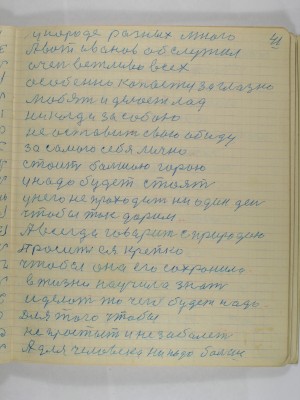 41
у породе разных много
Авот иванов обслужил
очен вежливо всех
особенно
любят и делоет лад
никогда засобою
не оставит свою обиду
за самого себя лично
стоит болшою горою
и надо будет стоят
унего не проходит ни один ден
чтобы так даром
Авсегда говорит сприродою
просит ся крепко
чтобся она его сохранила
вжизни научила знат
и делат то чего будет надо
Для того чтобы
не простыт и незаболет
Адля человека надо